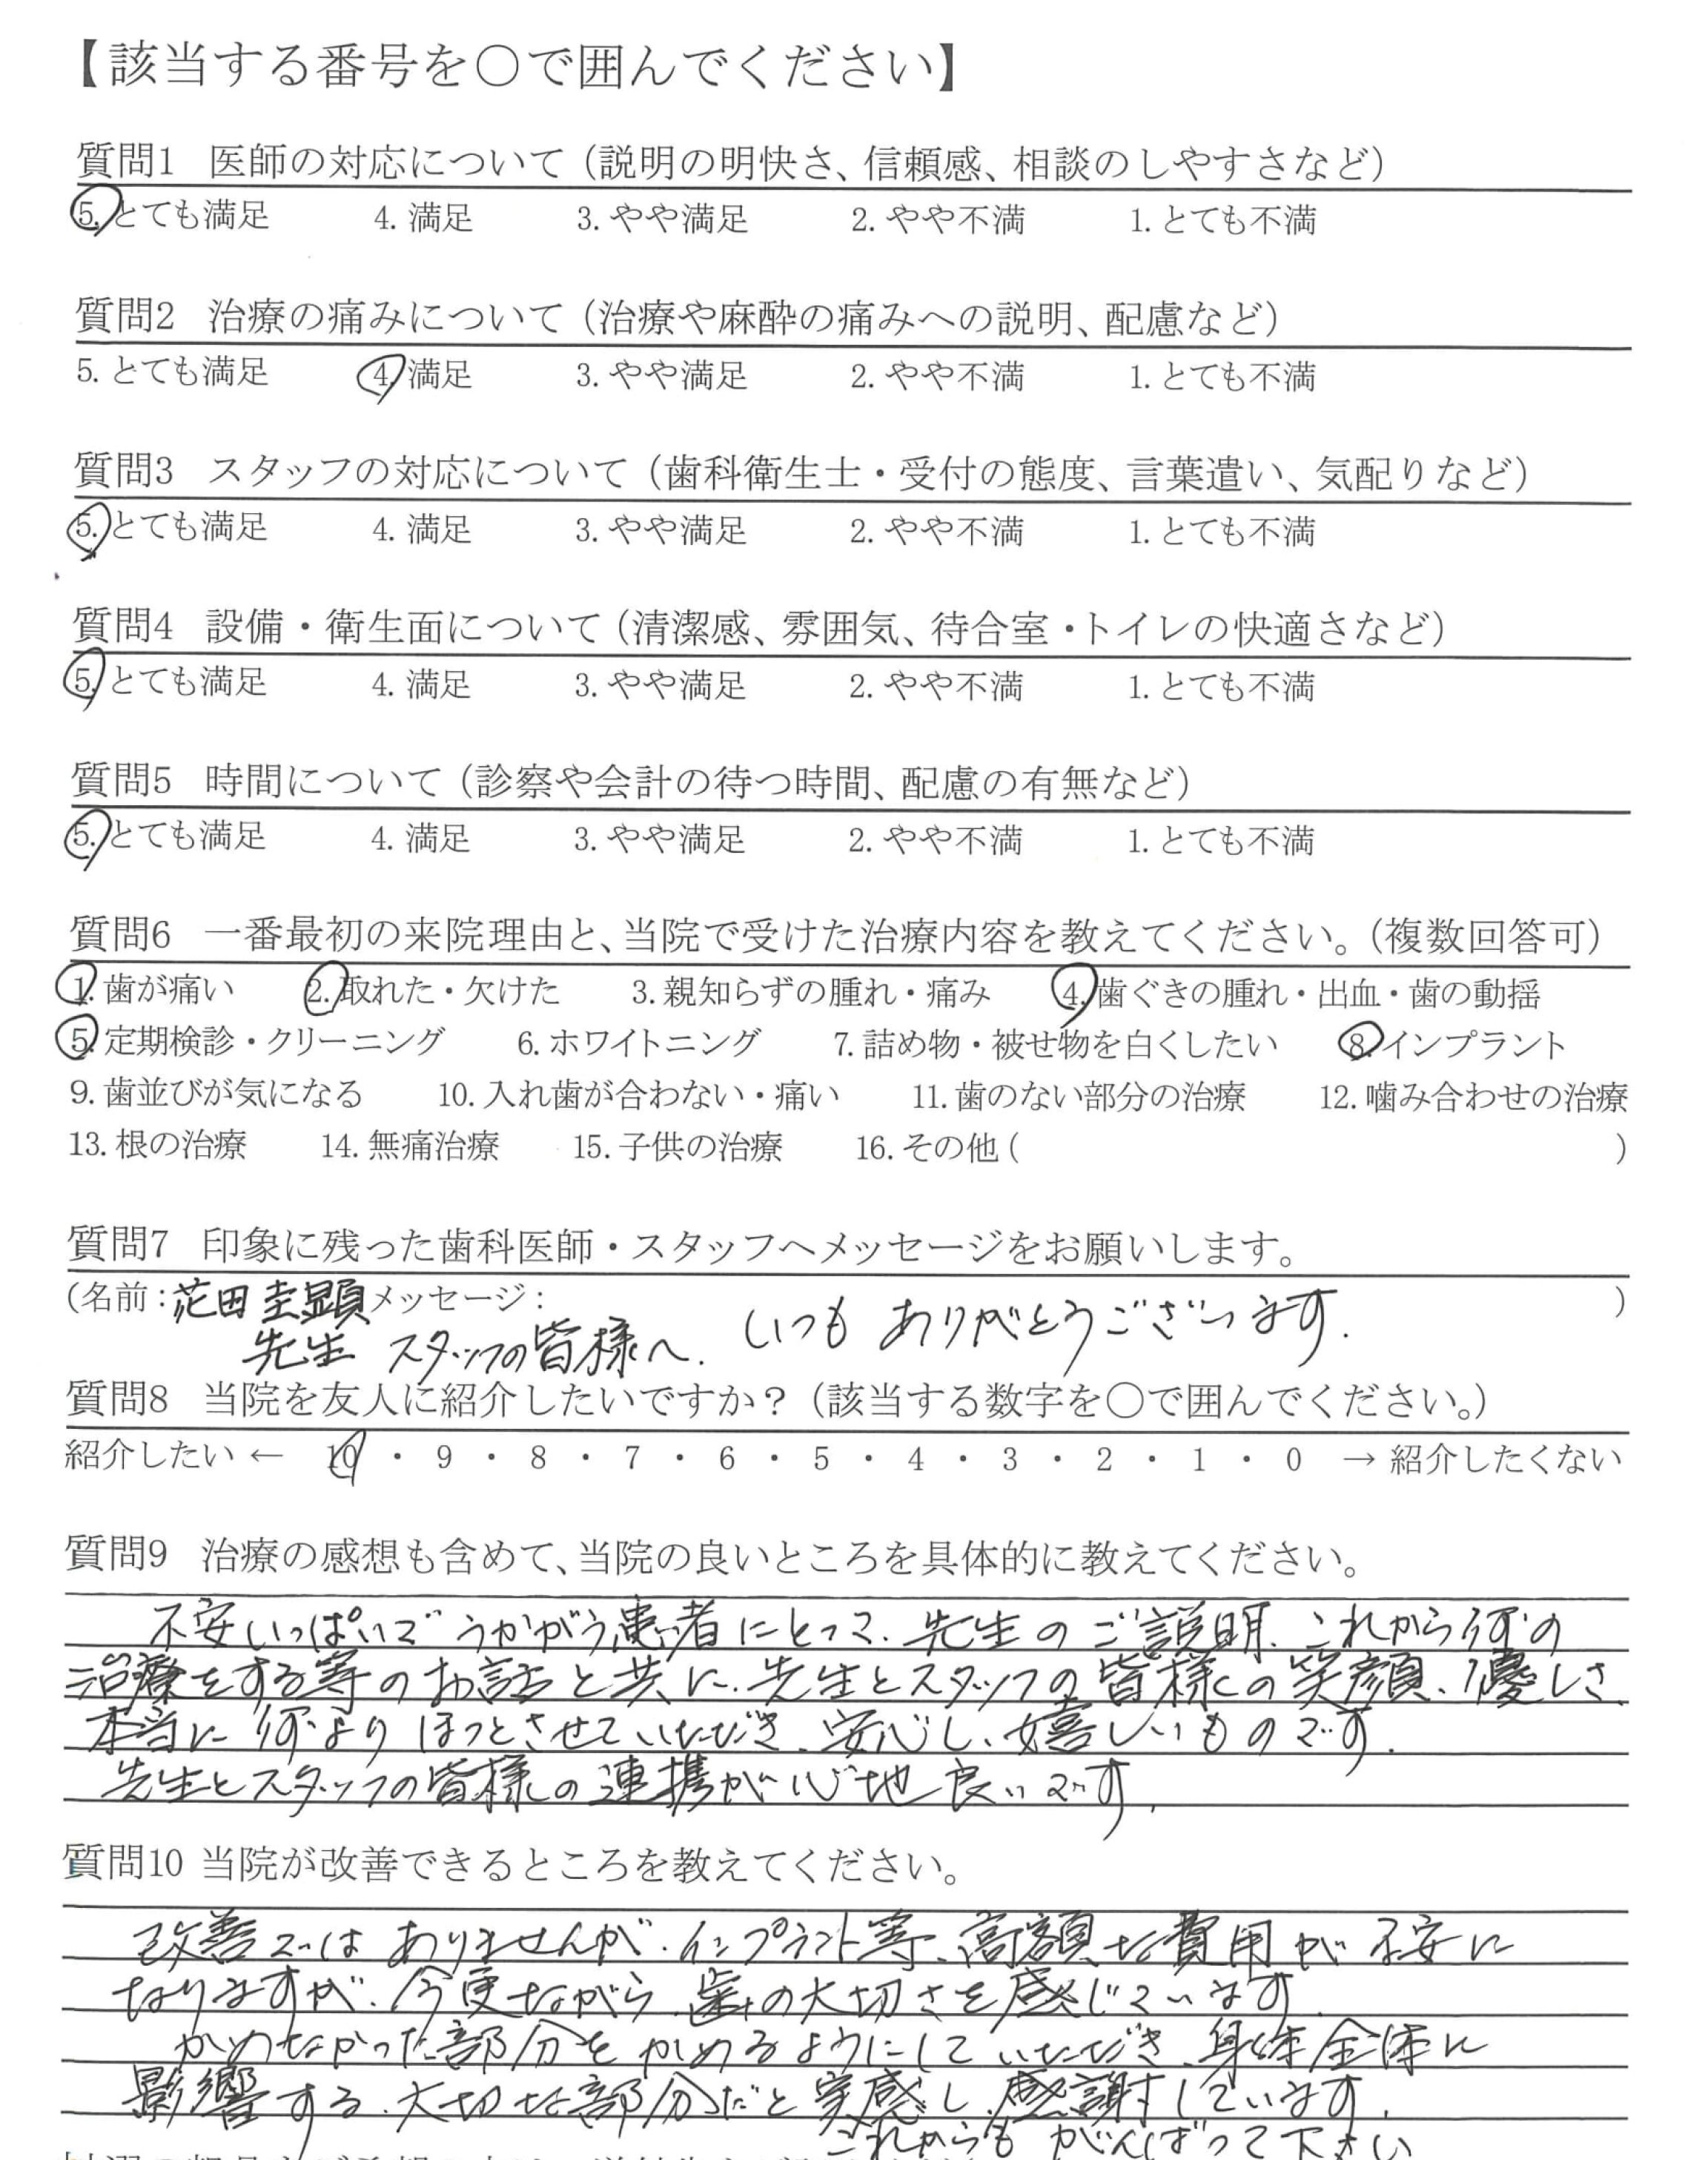 【該当する番号を○で囲んでください】
質問1 医師の対応について（説明の明快さ、信頼感、相談のしやすさなど）
5. とても満足 4. 満足 3. やや満足 2. やや不満 1. とても不満
質問2 治療の痛みについて（治療や麻酔の痛みへの説明、配慮など）
5. とても満足 4. 満足 3. やや満足 2. やや不満 1. とても不満
質問3 スタッフの対応について（歯科衛生士・受付の態度、言葉遣い、気配りなど）
5. とても満足 4. 満足 3. やや満足 2. やや不満 1. とても不満
質問4 設備・衛生面について（清潔感、雰囲気、待合室・トイレの快適さなど）
5. とても満足 4. 満足 3. やや満足 2. やや不満 1. とても不満
質問5 時間について（診察や会計の待つ時間、配慮の有無など）
5. とても満足 4. 満足 3. やや満足 2. やや不満 1. とても不満
質問6 一番最初の来院理由と、当院で受けた治療内容を教えてください。（複数回答可）
1. 歯が痛い 2. 取れた・欠けた 3. 親知らずの腫れ・痛み 4. 歯ぐきの腫れ・出血・歯の動揺
5. 定期検診・クリーニング 6. ホワイトニング 7. 詰め物・被せ物を白くしたい 8. インプラント
9. 歯並びが気になる 10. 入れ歯が合わない・痛い 11. 歯のない部分の治療 12. 噛み合わせの治療
13. 根の治療 14. 無痛治療 15. 子供の治療 16. その他（ ）
質問7 印象に残った歯科医師・スタッフへメッセージをお願いします。
（名前：花田 圭顕 メッセージ： ）
先生 スタッフの皆様へ. いつも ありがとうございます.
質問8 当院を友人に紹介したいですか？（該当する数字を○で囲んでください。）
紹介したい ← 10 ・ 9 ・ 8 ・ 7 ・ 6 ・ 5 ・ 4 ・ 3 ・ 2 ・ 1 ・ 0 → 紹介したくない
質問9 治療の感想も含めて、当院の良いところを具体的に教えてください。
不安いっぱいでうかがう患者にとって、先生のご説明、これから何の
治療をする等のお話と共に、先生とスタッフの皆様の笑顔、優しさ、
本当に何よりほっとさせていただき、安心し、嬉しいものです.
先生とスタッフの皆様の連携が心地良いです.
質問10 当院が改善できるところを教えてください。
改善ではありませんが、インプラント等、高額な費用が不安に
なりますが、今更ながら、歯の大切さを感じています.
かめなかった部分をかめるようにしていただき、身体全体に
影響する、大切な部分だと実感し、感謝しています.
これからも がんばって下さい